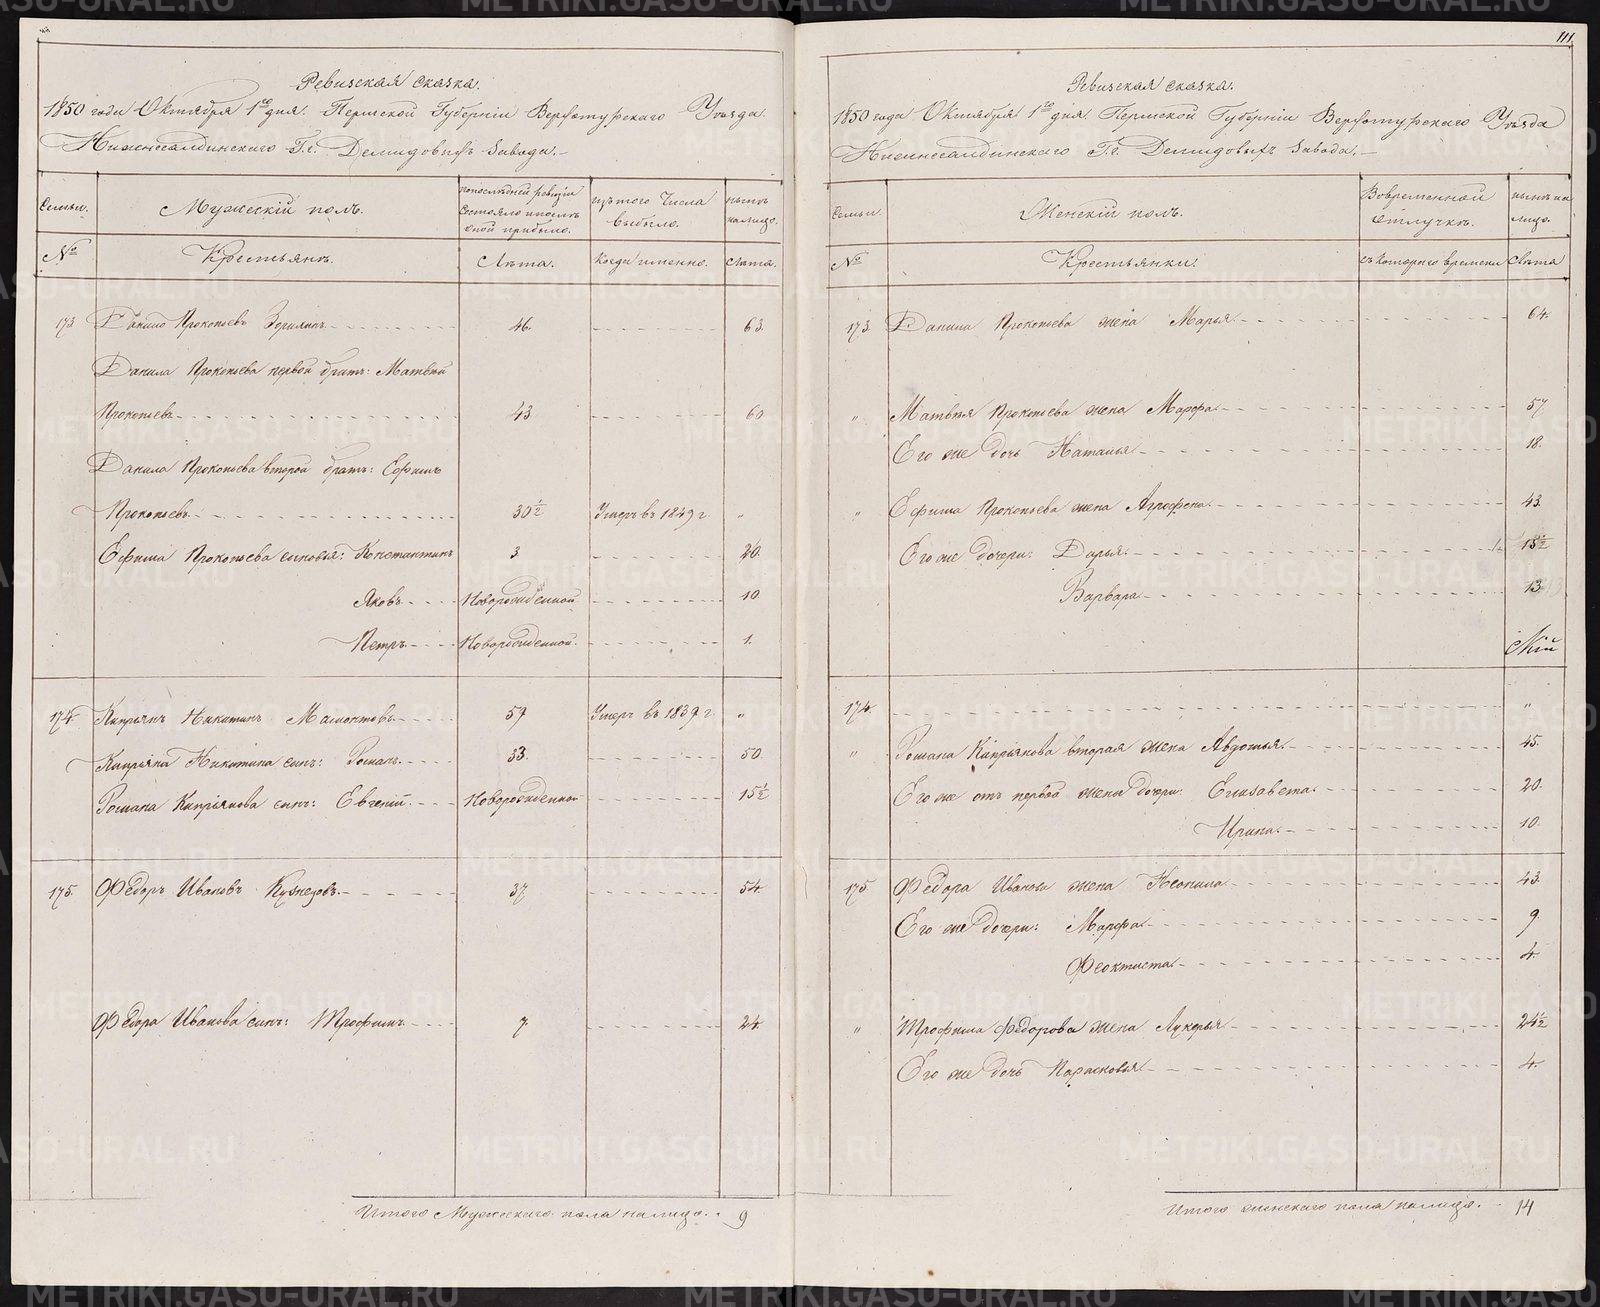 Ревизская сказка.
1850 года Октября 1го дня. Пермской Губерніи Верхотурскаго Уѣзда.
Нижнесалдинскаго Г.г. Демидовыхъ Завода.
Семьи.
Мужескій полъ.
По последней ревизіи состояло и после оной прибыло.
Изъ того Числа выбыло.
Нынѣ на лицо.
№
Крестьянъ.
Лѣта.
Когда именно.
Лѣта.
173 Данило Прокопьевъ 46. 63.
Данила Прокопьева первой братъ: Матвей
Прокопьевъ 43 60
Данила Прокопьева второй братъ: Ефимъ
Прокопьевъ 30½ Умеръ въ 1849 г. „
Ефима Прокопьева сыновья: Константинъ 3. 20.
Яковъ Новорожденной 10
Петръ Новорожденной. 1.
174. Кипріянъ Никитинъ Мамонтовъ 57 Умеръ въ 1839 г. „
Кипріяна Никитина сынъ: Романъ 33. 50
Романа Кипріянова сынъ: Евгеній. Новорожденной 15½
175. Федоръ Ивановъ Кузнецовъ 37 54
Федора Иванова сынъ: Трофимъ 7. 24
Итого Мужескаго пола на лицо. 9
111
Ревизская сказка.
1850 года Октября 1го дня. Пермской Губерніи Верхотурскаго Уѣзда
Нижнесалдинскаго Г.г. Демидовыхъ Завода.
Семьи.
Женскій полъ.
Во временной отлучкѣ.
Нынѣ на лицо.
№
Крестьянки.
Съ котораго времени
Лѣта
173. Данила Прокопьева жена Марья 64.
„ Матвея Прокопьева жена Марфа 57
Его же дочь Наталья 18
„ Ефима Прокопьева жена Агрофена 43
Его же дочери: Дарья 15½
Варвара 13
174. „
„ Романа Кипріянова вторая жена Авдотья 45.
Его же отъ первой жены дочери: Елизавета 20.
Ирина 10.
175. Федора Иванова жена Неонила 43
Его же дочери: Марфа 9.
Феоктиста 4.
„ Трофима Федорова жена Лукерья 24½
Его же дочь Парасковья 4.
Итого женскаго пола на лицо. 14
METRIKI.GASO-URAL.RU